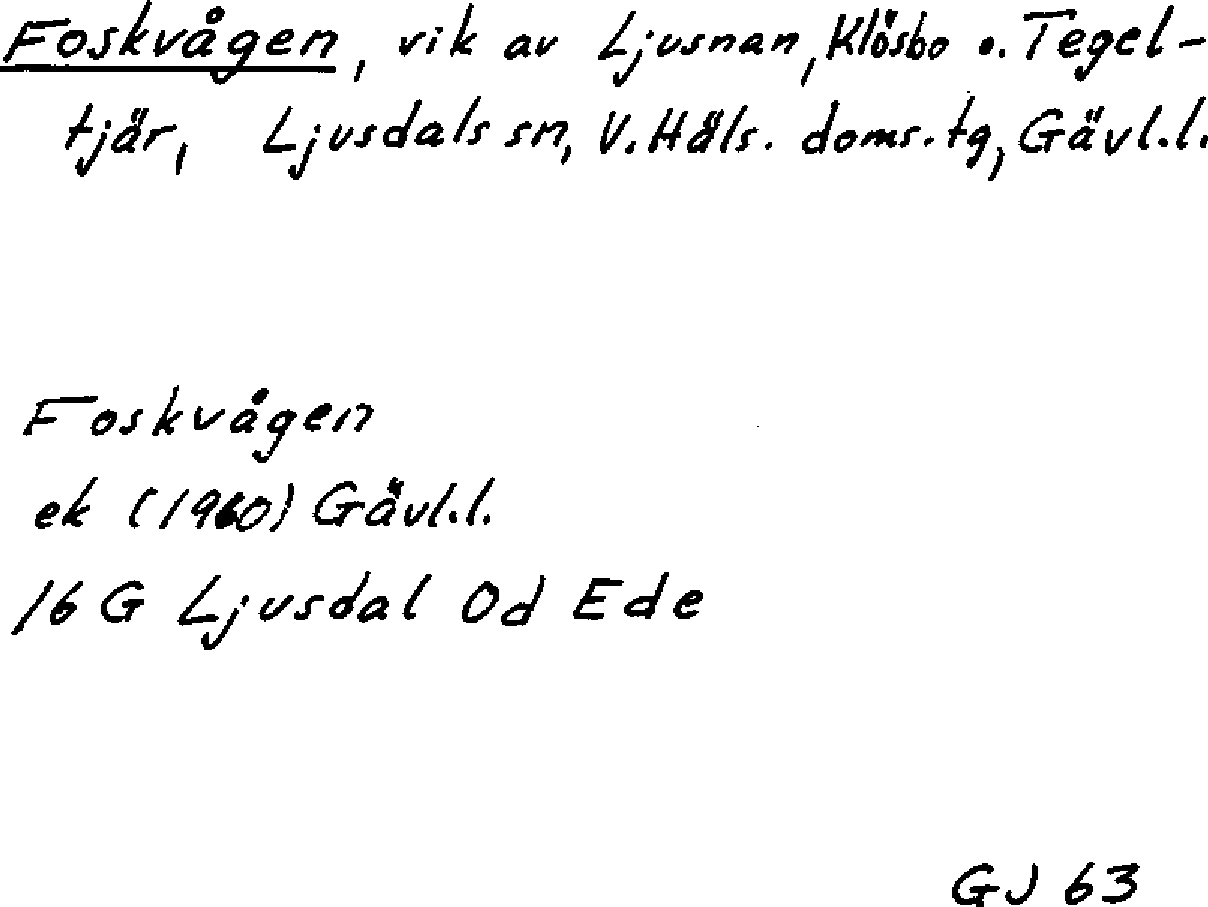 Foskvågen, vik av Ljusnan, Klösbo o. Tegel-
tjär, Ljusdals sn, V. Häls. doms. tg, Gävl.l.
Foskvågen
ek (1960) Gävl.l.
16 G Ljusdal 0d Ede
GJ 63